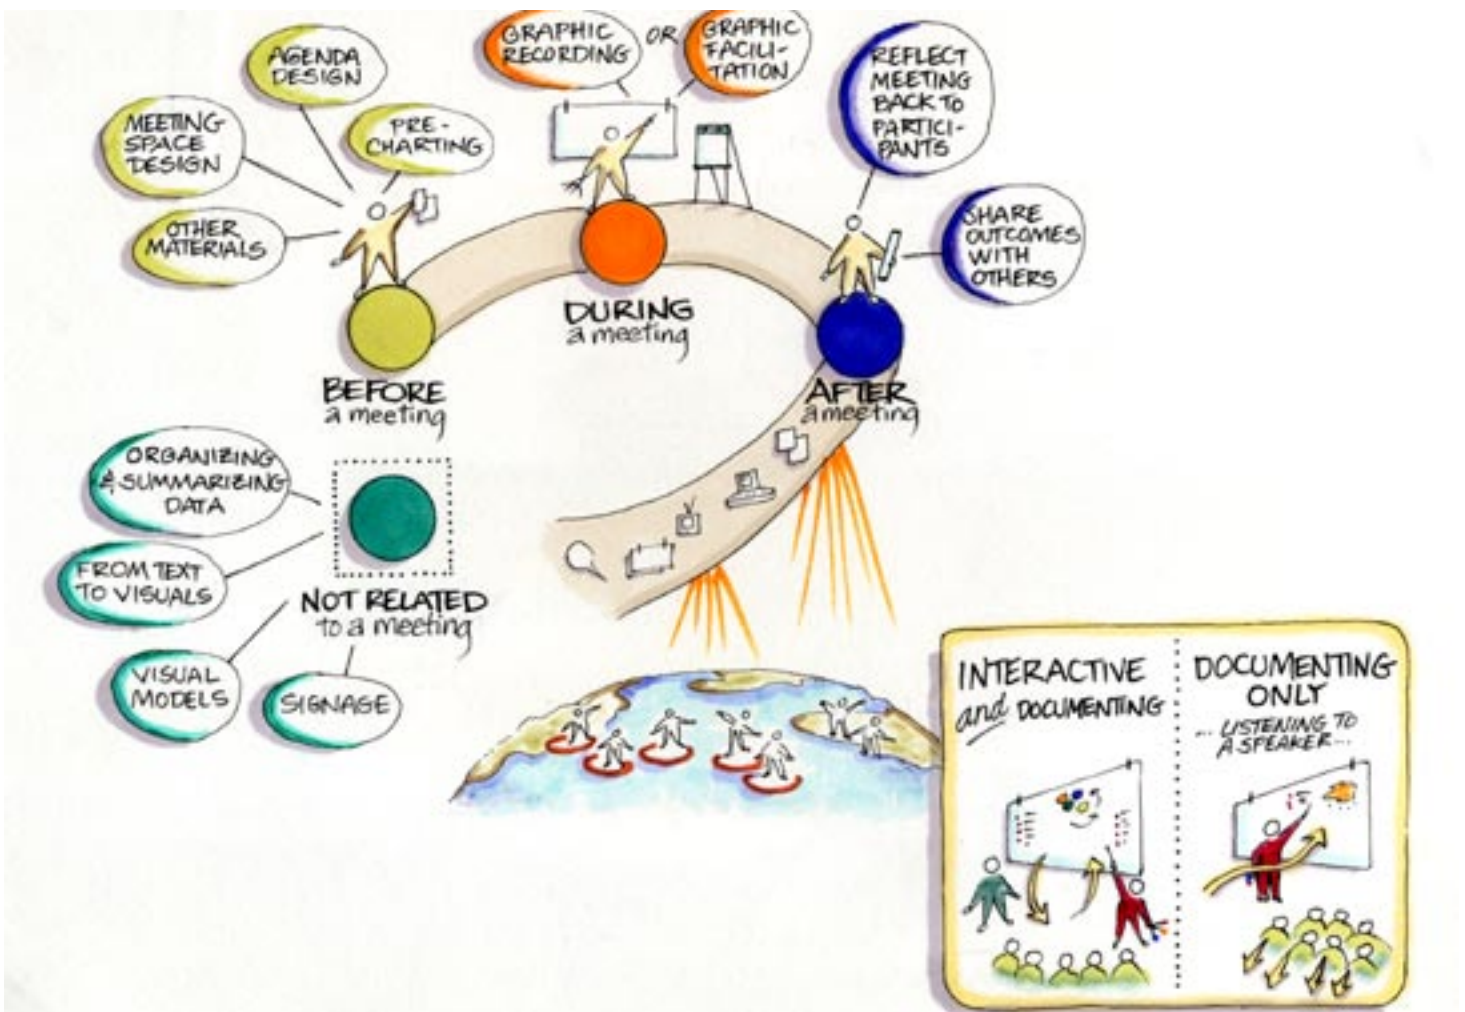 AGENDA
DESIGN
MEETING
SPACE
DESIGN
PRE-
CHARTING
OTHER
MATERIALS
BEFORE
a meeting
GRAPHIC
RECORDING
OR
GRAPHIC
FACILI-
TATION
DURING
a meeting
REFLECT
MEETING
BACK TO
PARTICI-
PANTS
SHARE
OUTCOMES
WITH
OTHERS
AFTER
a meeting
ORGANIZING
& SUMMARIZING
DATA
FROM TEXT
TO VISUALS
VISUAL
MODELS
SIGNAGE
NOT RELATED
to a meeting
INTERACTIVE
and DOCUMENTING
DOCUMENTING
ONLY
... LISTENING TO
A SPEAKER...